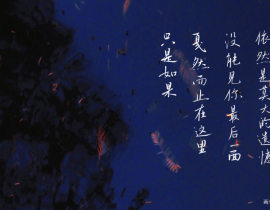 依然是莫大的遗憾
没能见你最后一面
戛然而止在这里
只是如果